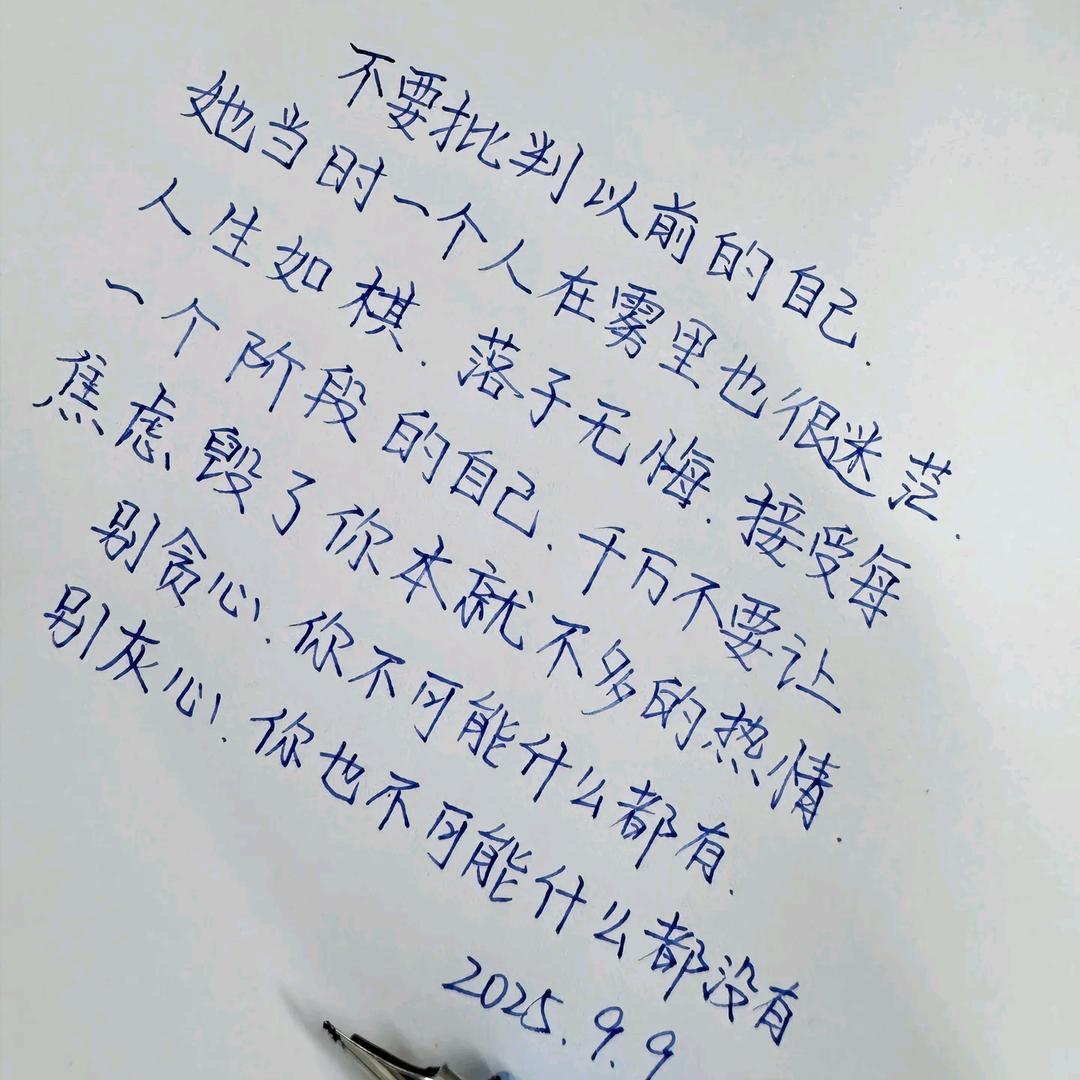 不要批判以前的自己.
她当时一个人在雾里也很迷茫.
人生如棋.落子无悔.接受每
一个阶段的自己.千万不要让
焦虑毁了你本就不多的热情.
别贪心.你不可能什么都有.
别灰心.你也不可能什么都没有
2025.9.9